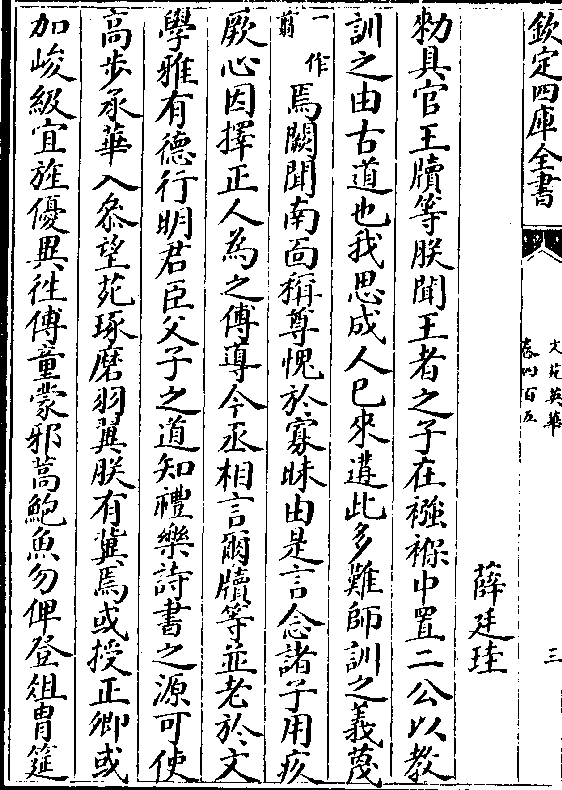 欽定四庫全書
文苑英華
卷四百五
三
薛廷珪
勑具官王牘等朕聞王者之子在襁褓中置二公以教
訓之由古道也我思成人已來遘此多難師訓之義蔑
一作
翦
焉闕聞南面稱尊愧於寡昧由是言念諸子用疚
厥心因擇正人為之傅導今丞相言爾牘等並老於文
學雅有德行明君臣父子之道知禮樂詩書之源可使
高步承華入叅望苑琢磨羽翼朕有冀焉或授正卿或
加峻級宜旌優異往傅童蒙邪蒿鮑魚勿俾登俎胄筵